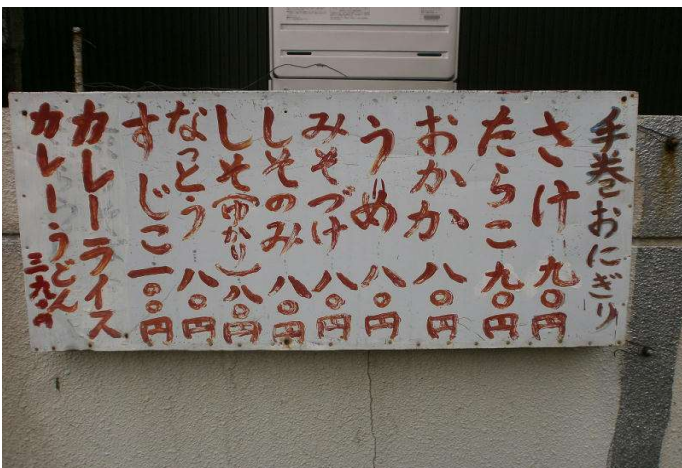 手巻おにぎり
さけ 九〇円
たらこ 九〇円
おかか 八〇円
うめ 八〇円
みそづけ 八〇円
しそのみ 八〇円
しそ(ゆかり) 八〇円
なっとう 八〇円
すじこ 一〇〇円
カレーライス
カレーうどん 三九〇円